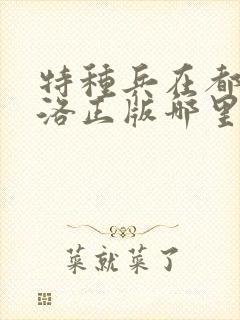 特種兵在都
洛正版哪里
菜就菜了